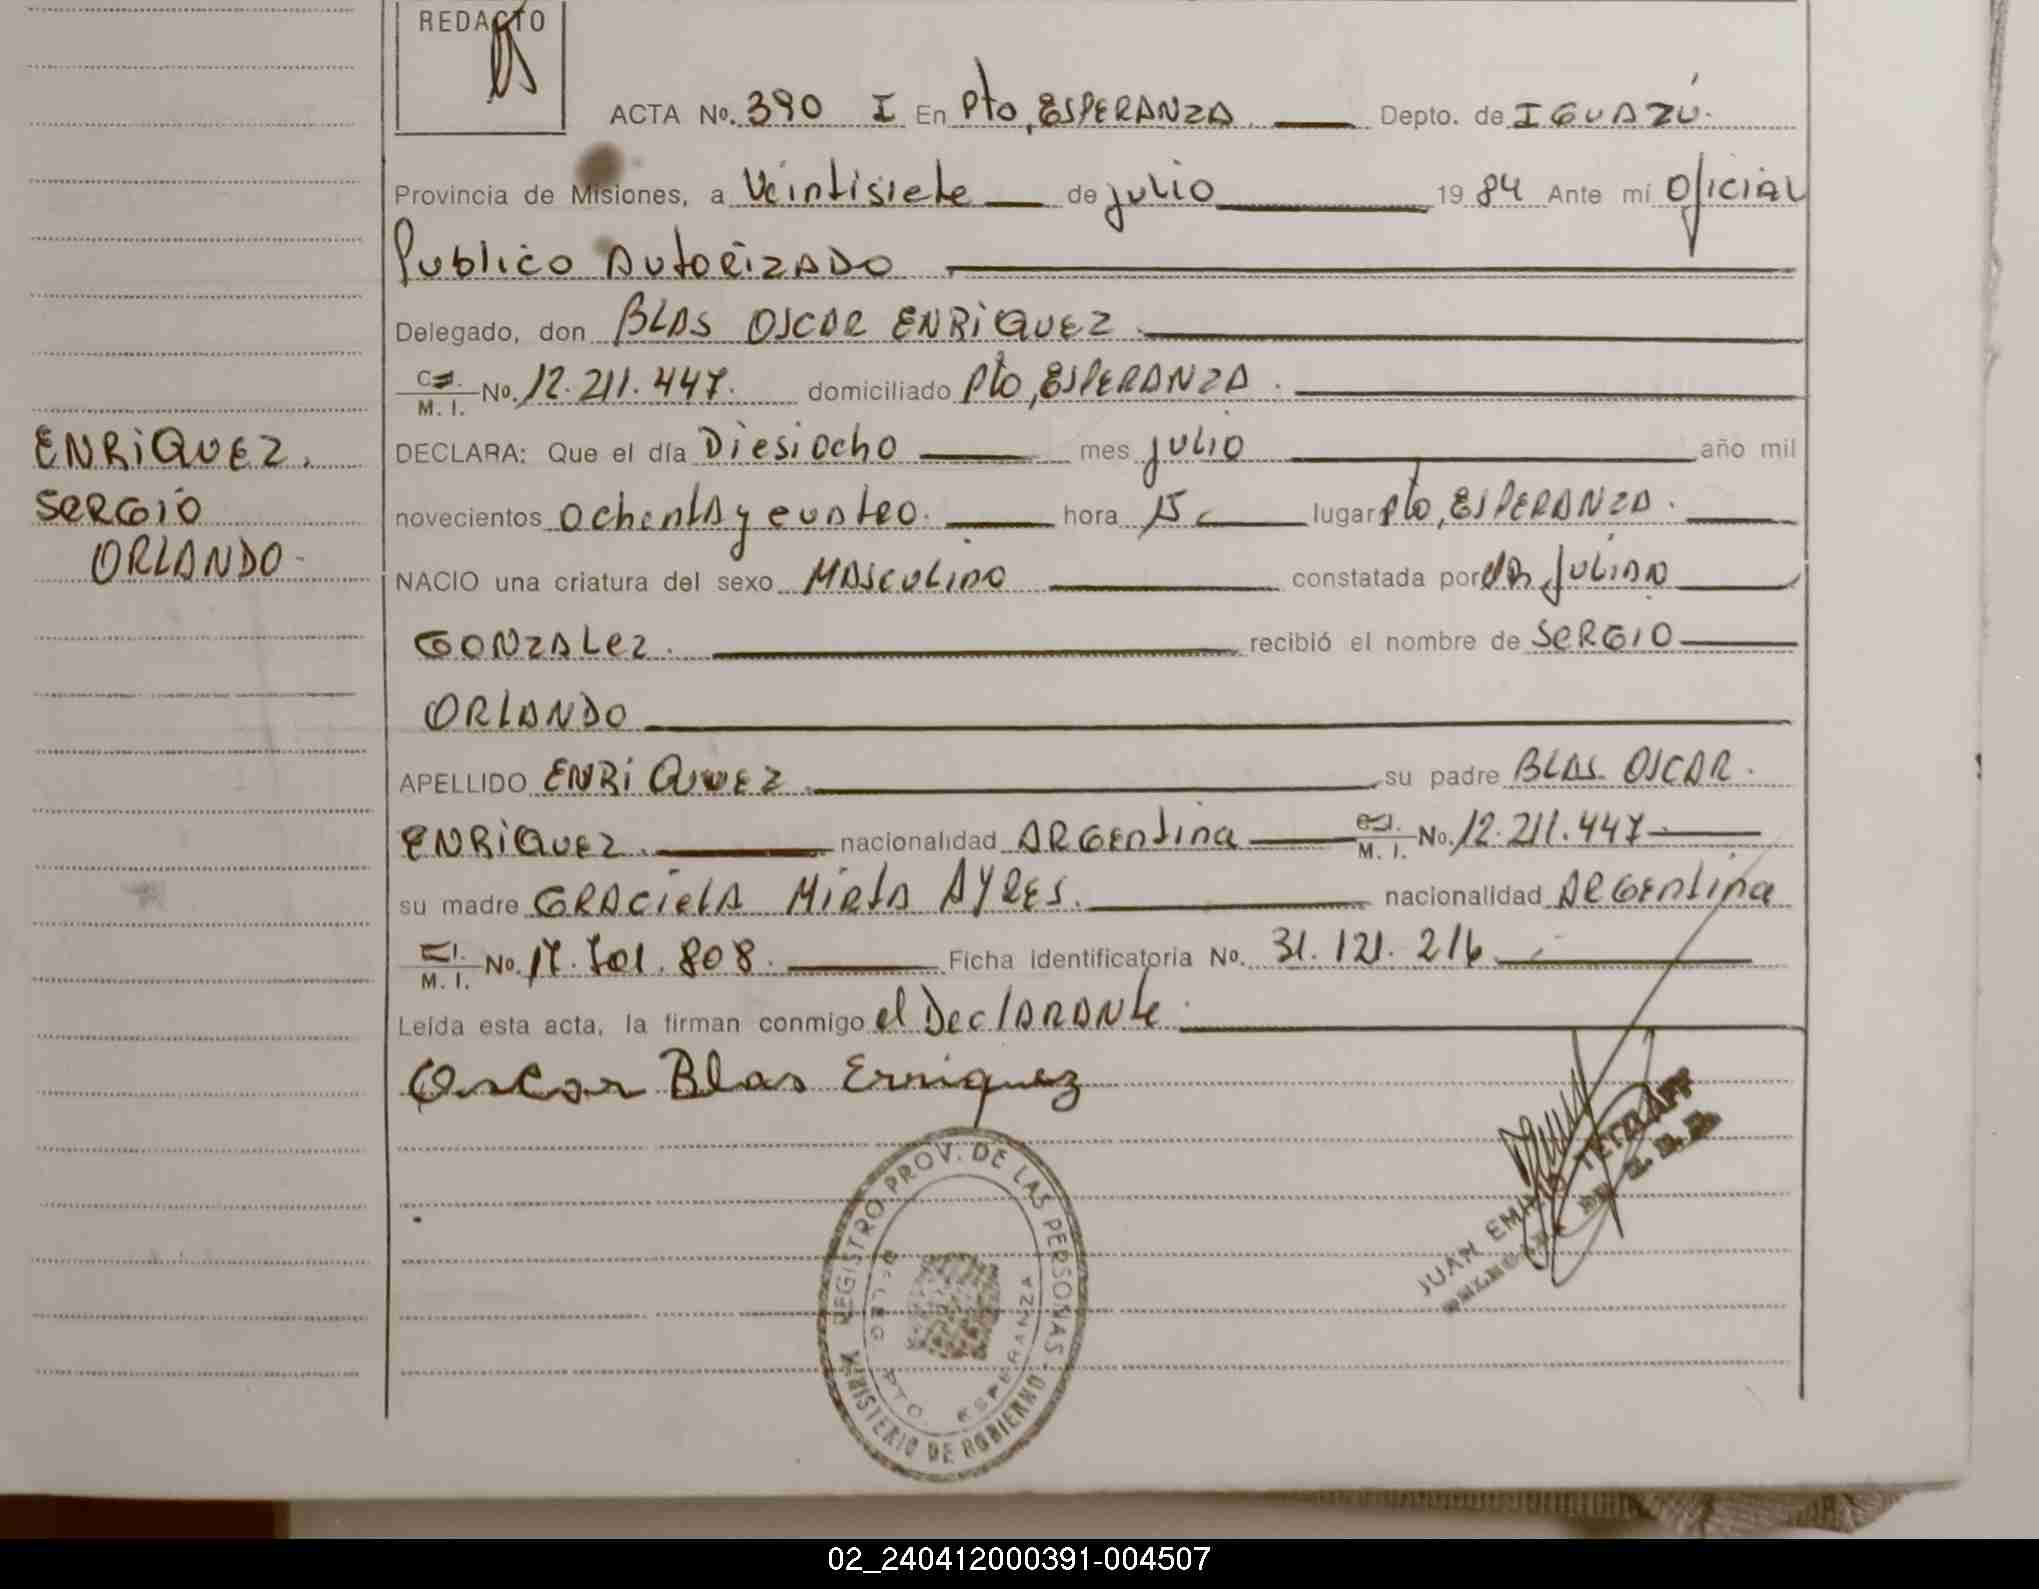 REDACTO
ACTA No. 390 I En Pto, ESPERANZA. Depto. de IGUAZÚ.
Provincia de Misiones, a Veintisiete de julio 19 84 Ante mí Oficial
Publico AutoRizADO
Delegado, don BLAS OSCAR ENRIQUEZ
C.I. M. I. No. 12.211.447. domiciliado Pto, ESPERANZA.
ENRIQUEZ. DECLARA: Que el día Diesiocho mes julio año mil
SERGIO novecientos ochenta y cuatro. hora 15 lugar Pto, ESPERANZA.
ORLANDO. NACIO una criatura del sexo MASCULINO constatada por DR. JULIAN
GONZALEZ. recibió el nombre de SERGIO
ORLANDO
APELLIDO ENRIQUEZ su padre BLAS OSCAR.
ENRIQUEZ. nacionalidad ARGentina C.I. M. I. No. 12.211.447
su madre GRACIELA MIRTA AYRES. nacionalidad ARGentina
C.I. M. I. No. 17.701.808. Ficha identificatoria No. 31.121.216
Leída esta acta, la firman conmigo el DeclARANte.
Oscar Blas Enriquez
REGISTRO PROV. DE LAS PERSONAS - MINISTERIO DE GOBIERNO
DELEG. PTO. ESPERANZA
JUAN EMILIO TETZLAFF
02_240412000391-004507